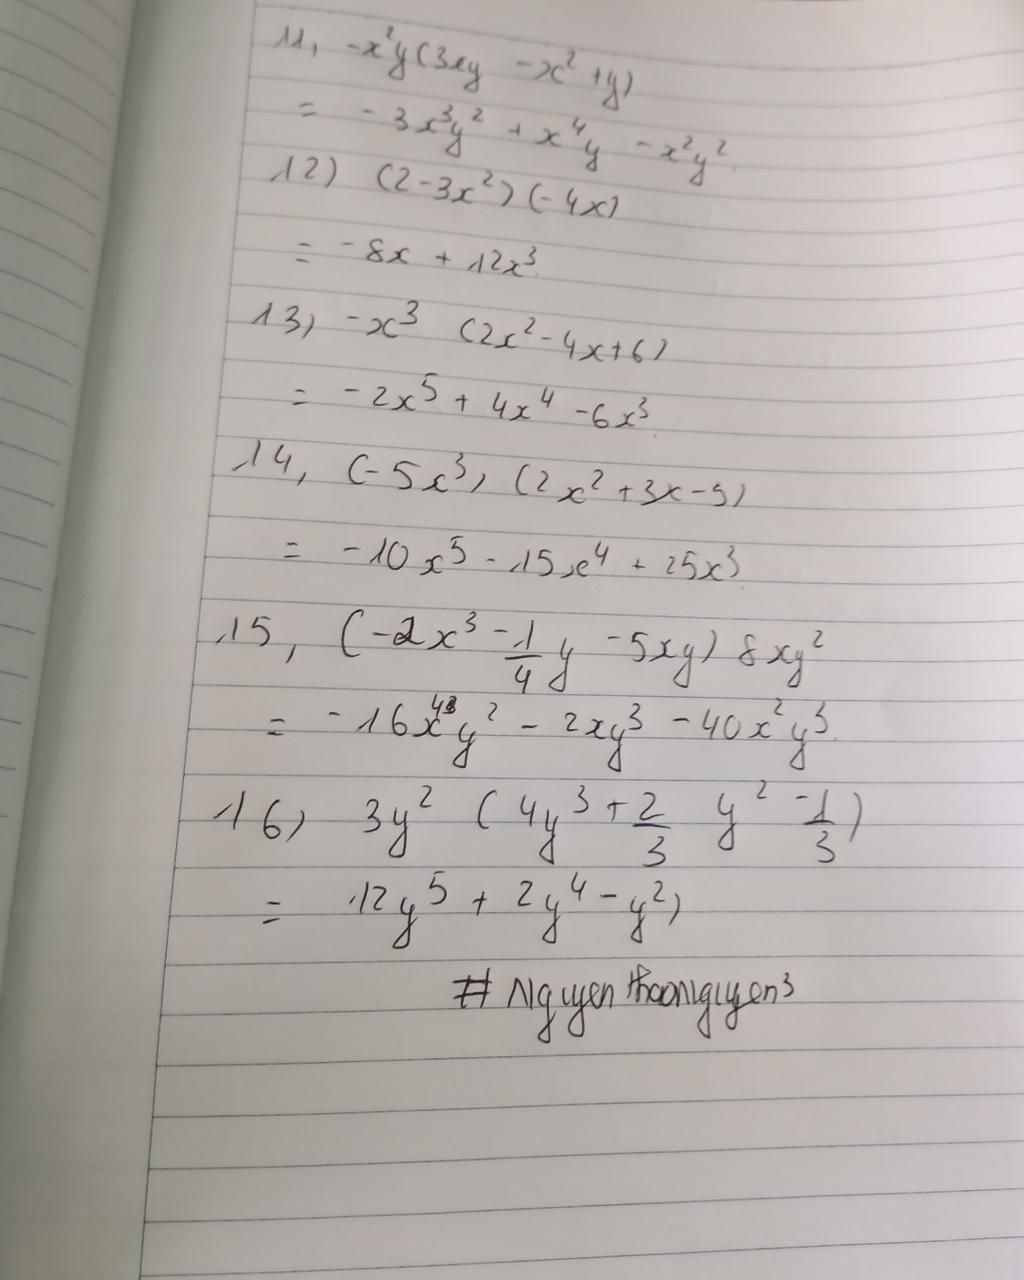 11, -x²y(3xy -x² +y)
= -3x³y² + x⁴y -x²y²
12) (2-3x²)(-4x)
= -8x + 12x³.
13, -x³ (2x²-4x+6)
= -2x⁵ + 4x⁴ -6x³
14, (-5x³) (2x²+3x-5)
= -10x⁵ - 15x⁴ + 25x³
15, (-2x³ - 1/4 y -5xy) 8xy²
= -16x⁴y² - 2xy³ -40x²y³.
16) 3y² (4y³ + 2/3 y² - 1/3)
= 12y⁵ + 2y⁴ - y²)